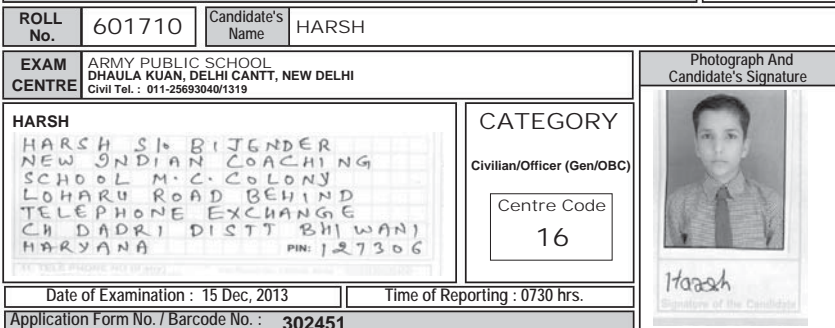 ROLL No. 601710 Candidate's Name HARSH
EXAM CENTRE
ARMY PUBLIC SCHOOL
DHAULA KUAN, DELHI CANTT, NEW DELHI
Civil Tel. : 011-25693040/1319
Photograph And
Candidate's Signature
HARSH
HARSH S/o BIJENDER
NEW INDIAN COACHING
SCHOOL M.C. COLONY
LOHARU ROAD BEHIND
TELEPHONE EXCHANGE
CH DADRI DISTT BHIWANI
HARYANA PIN: 127306
11. TELE PHONE NO (if any)
CATEGORY
Civilian/Officer (Gen/OBC)
Centre Code
16
Harsh
Signature of the Candidate
Date of Examination : 15 Dec, 2013
Time of Reporting : 0730 hrs.
Application Form No. / Barcode No. : 302451